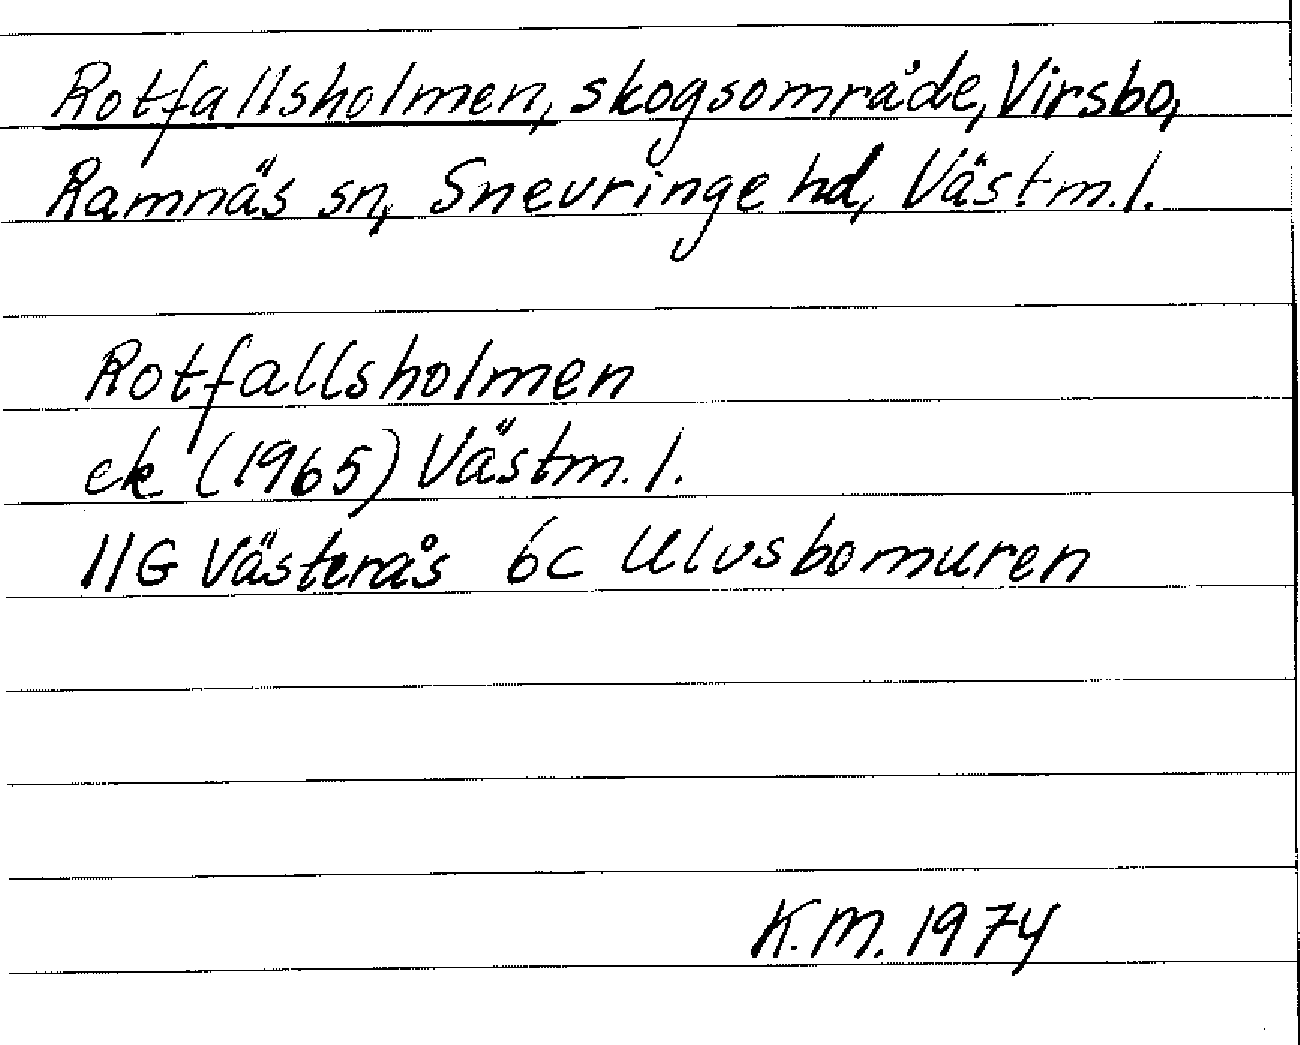 Rotfallsholmen, skogsområde, Virsbo,
Ramnäs sn, Snevringe hd, Västm. l.
Rotfallsholmen
ek (1965) Västm. l.
11G Västerås 6c Ulvsbomuren
K.M. 1974